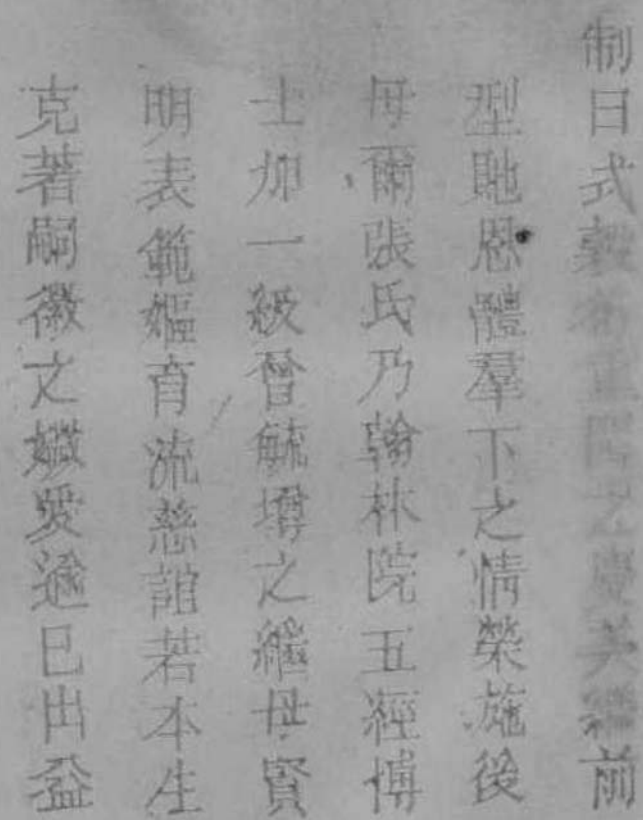 制曰式穀彰重闈之慶美繼前
型貤恩體羣下之情榮施後
母爾張氏乃翰林院五經博
士加一級曾毓墫之繼母賢
明表範嫗育流慈誼若本生
克著嗣徽之媺愛逾己出益